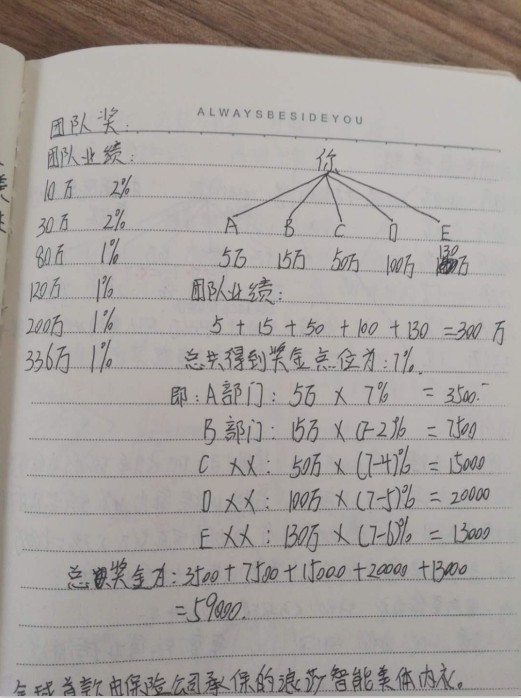 ALWAYSBESIDEYOU
团队奖:
团队业绩:
10万 2%
30万 2%
80万 1%
120万 1%
200万 1%
336万 1%
你
A B C D E
5万 15万 50万 100万 130万
团队业绩:
5+15+50+100+130=300万
总共得到奖金点位为:7%.
即:A部门:5万×7% =3500.-
B部门:15万×(7-2)% =7500
C××:50万×(7-4)% =15000
D××:100万×(7-5)% =20000
E××:130万×(7-6)% =13000
总奖金为:3500+7500+15000+20000+13000
=59000.
全球首款由保险公司承保的浪莎智能美体内衣。